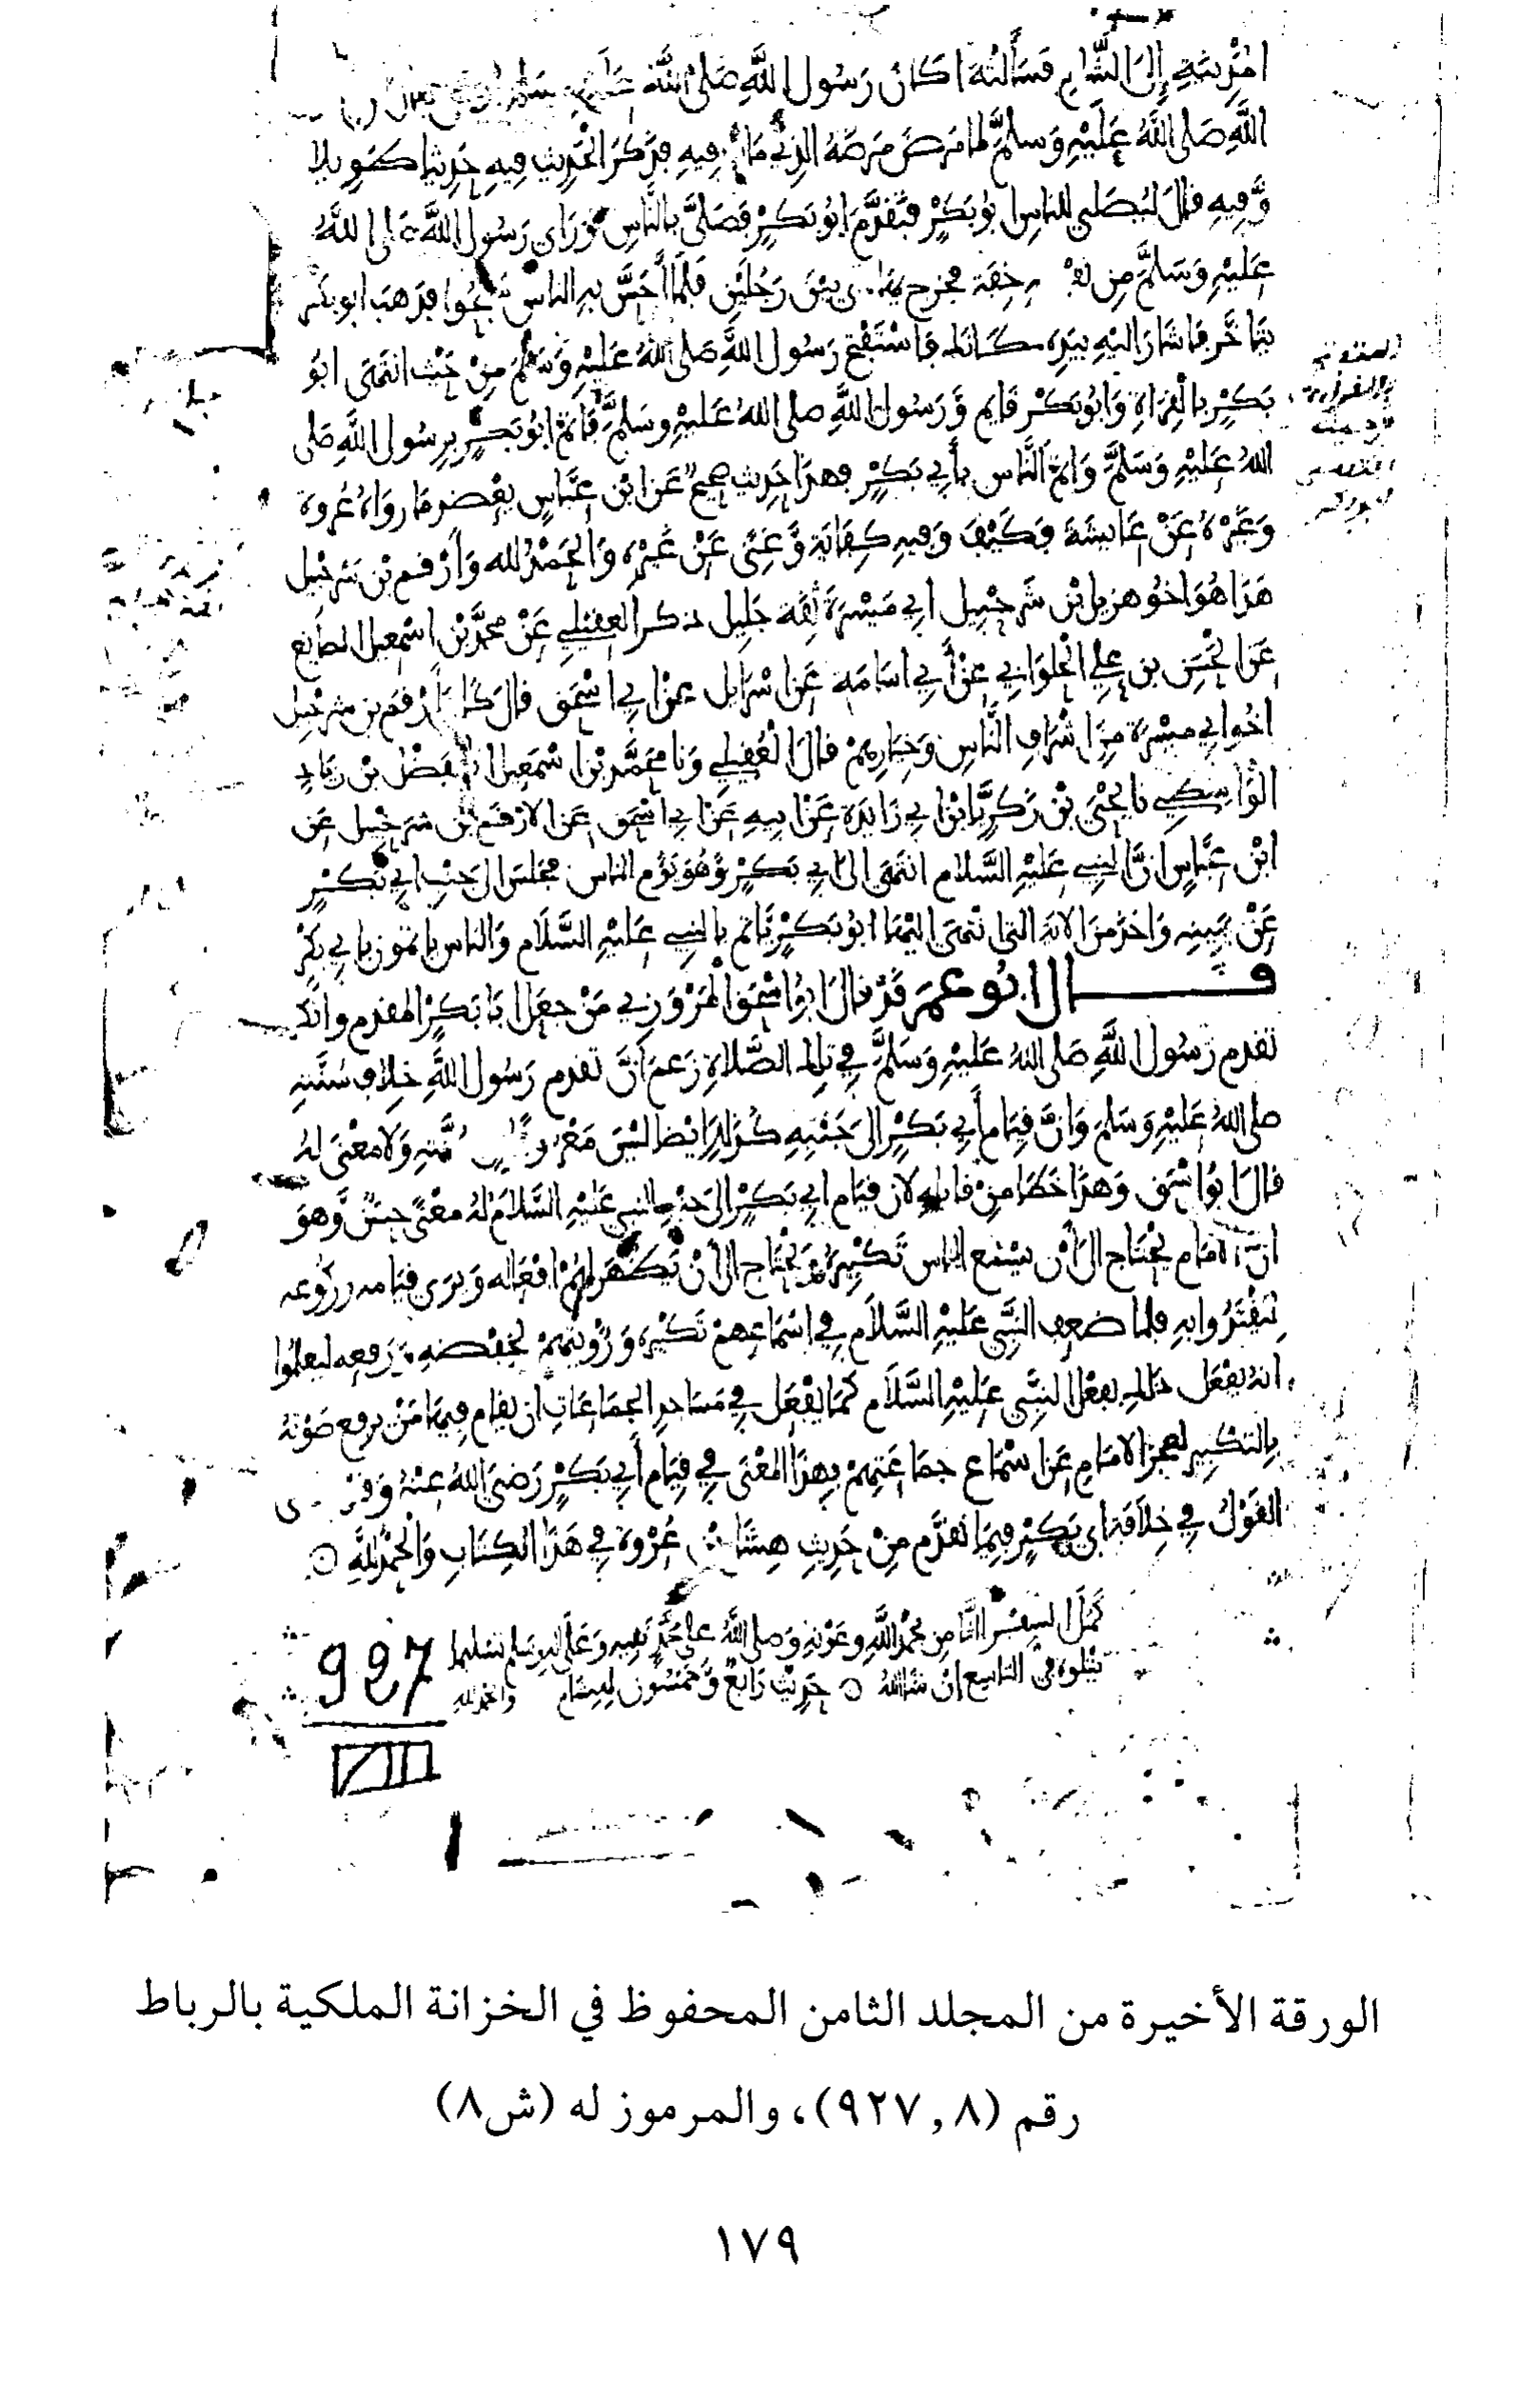 المدينة إلى الشام فسألته أكان رسول الله صلى الله عليه وسلم
الله صلى الله عليه وسلم لما مرض مرضه الذي مات فيه فذكر الحديث فيه حديثا طويلا
وفيه قال ليصلي للناس أبو بكر فتقدم أبو بكر فصلى بالناس ورأى رسول الله صلى الله
عليه وسلم من نفسه خفة فخرج يهادى بين رجلين فلما أحس به الناس سبحوا فذهب أبو بكر
يتأخر فأشار إليه بيده مكانك فاستفتح رسول الله صلى الله عليه وسلم من حيث انتهى أبو
بكر بالقراءة وأبو بكر قايم ورسول الله صلى الله عليه وسلم فأتم أبو بكر برسول الله صلى
الله عليه وسلم وأتم الناس بأبي بكر فهذا حديث صحيح عن ابن عباس يعضد ما رواه عروة
وغيره عن عايشة فكيف وفيه كفاية وغنى عن غيره والحمد لله وأرقم بن شرحبيل
هذا هو أخو هزيل بن شرحبيل أبي ميسرة ثقة جليل ذكر العقيلي عن محمد بن إسمعيل الصايغ
عن الحسن بن علي الحلواني عن أبي أسامة عن إسرايل عن أبي إسحق قال كان أرقم بن شرحبيل
أخو أبي ميسرة من أشراف الناس وخيارهم قال العقيلي ونا محمد بن إسمعيل نا الفضل بن زياد
الواسطي نا يحيى بن زكريا بن أبي زايدة عن أبيه عن أبي إسحق عن الأرقم بن شرحبيل عن
ابن عباس أن النبي عليه السلام انتهى إلى أبي بكر وهو يؤم الناس فجلس إلى جنب أبي بكر
عن يمينه وأخذ من الآية التي انتهى إليها أبو بكر فأتم بالنبي عليه السلام والناس يأتمون بأبي بكر
قال أبو عمر قد قال أبو إسحق المروزي من جعل أبا بكر المقدم وأنكر
تقدم رسول الله صلى الله عليه وسلم في تلك الصلاة زعم أن تقدم رسول الله خلاف سنته
صلى الله عليه وسلم وأن قيام أبي بكر إلى جنبه كذلك أيضا ليس معروفا ولا معنى له
قال أبو إسحق وهذا خطأ من قايله لأن قيام أبي بكر إلى جنب النبي عليه السلام له معنى حسن وهو
أن الإمام يحتاج إلى أن يسمع الناس تكبيره ويحتاج إلى أن تظهر لهم أفعاله ويرى قيامه وركوعه
ليقتدوا به فلما ضعف النبي عليه السلام في إسماعهم تكبيره ورؤيتهم لخفضه ورفعه ليعلموا
أنه يفعل ذلك بفعل النبي عليه السلام كما يفعل في مساجد الجماعات أن يقام فيها من يرفع صوته
بالتكبير لعجز الإمام عن إسماع جماعتهم فهذا المعنى في قيام أبي بكر رضي الله عنه وقد
القول في خلافة أبي بكر فيما تقدم من حديث هشام بن عروة في هذا الكتاب والحمد لله
كمل السفر الثامن بحمد الله وعونه وصلى الله على محمد نبيه وعلى آله وسلم تسليما
يتلوه في التاسع إن شاء الله حديث رابع وخمسون لهشام والحمد لله
927
VIII
الورقة الأخيرة من المجلد الثامن المحفوظ في الخزانة الملكية بالرباط
رقم (٩٢٧,٨)، والمرموز له (ش٨)
١٧٩